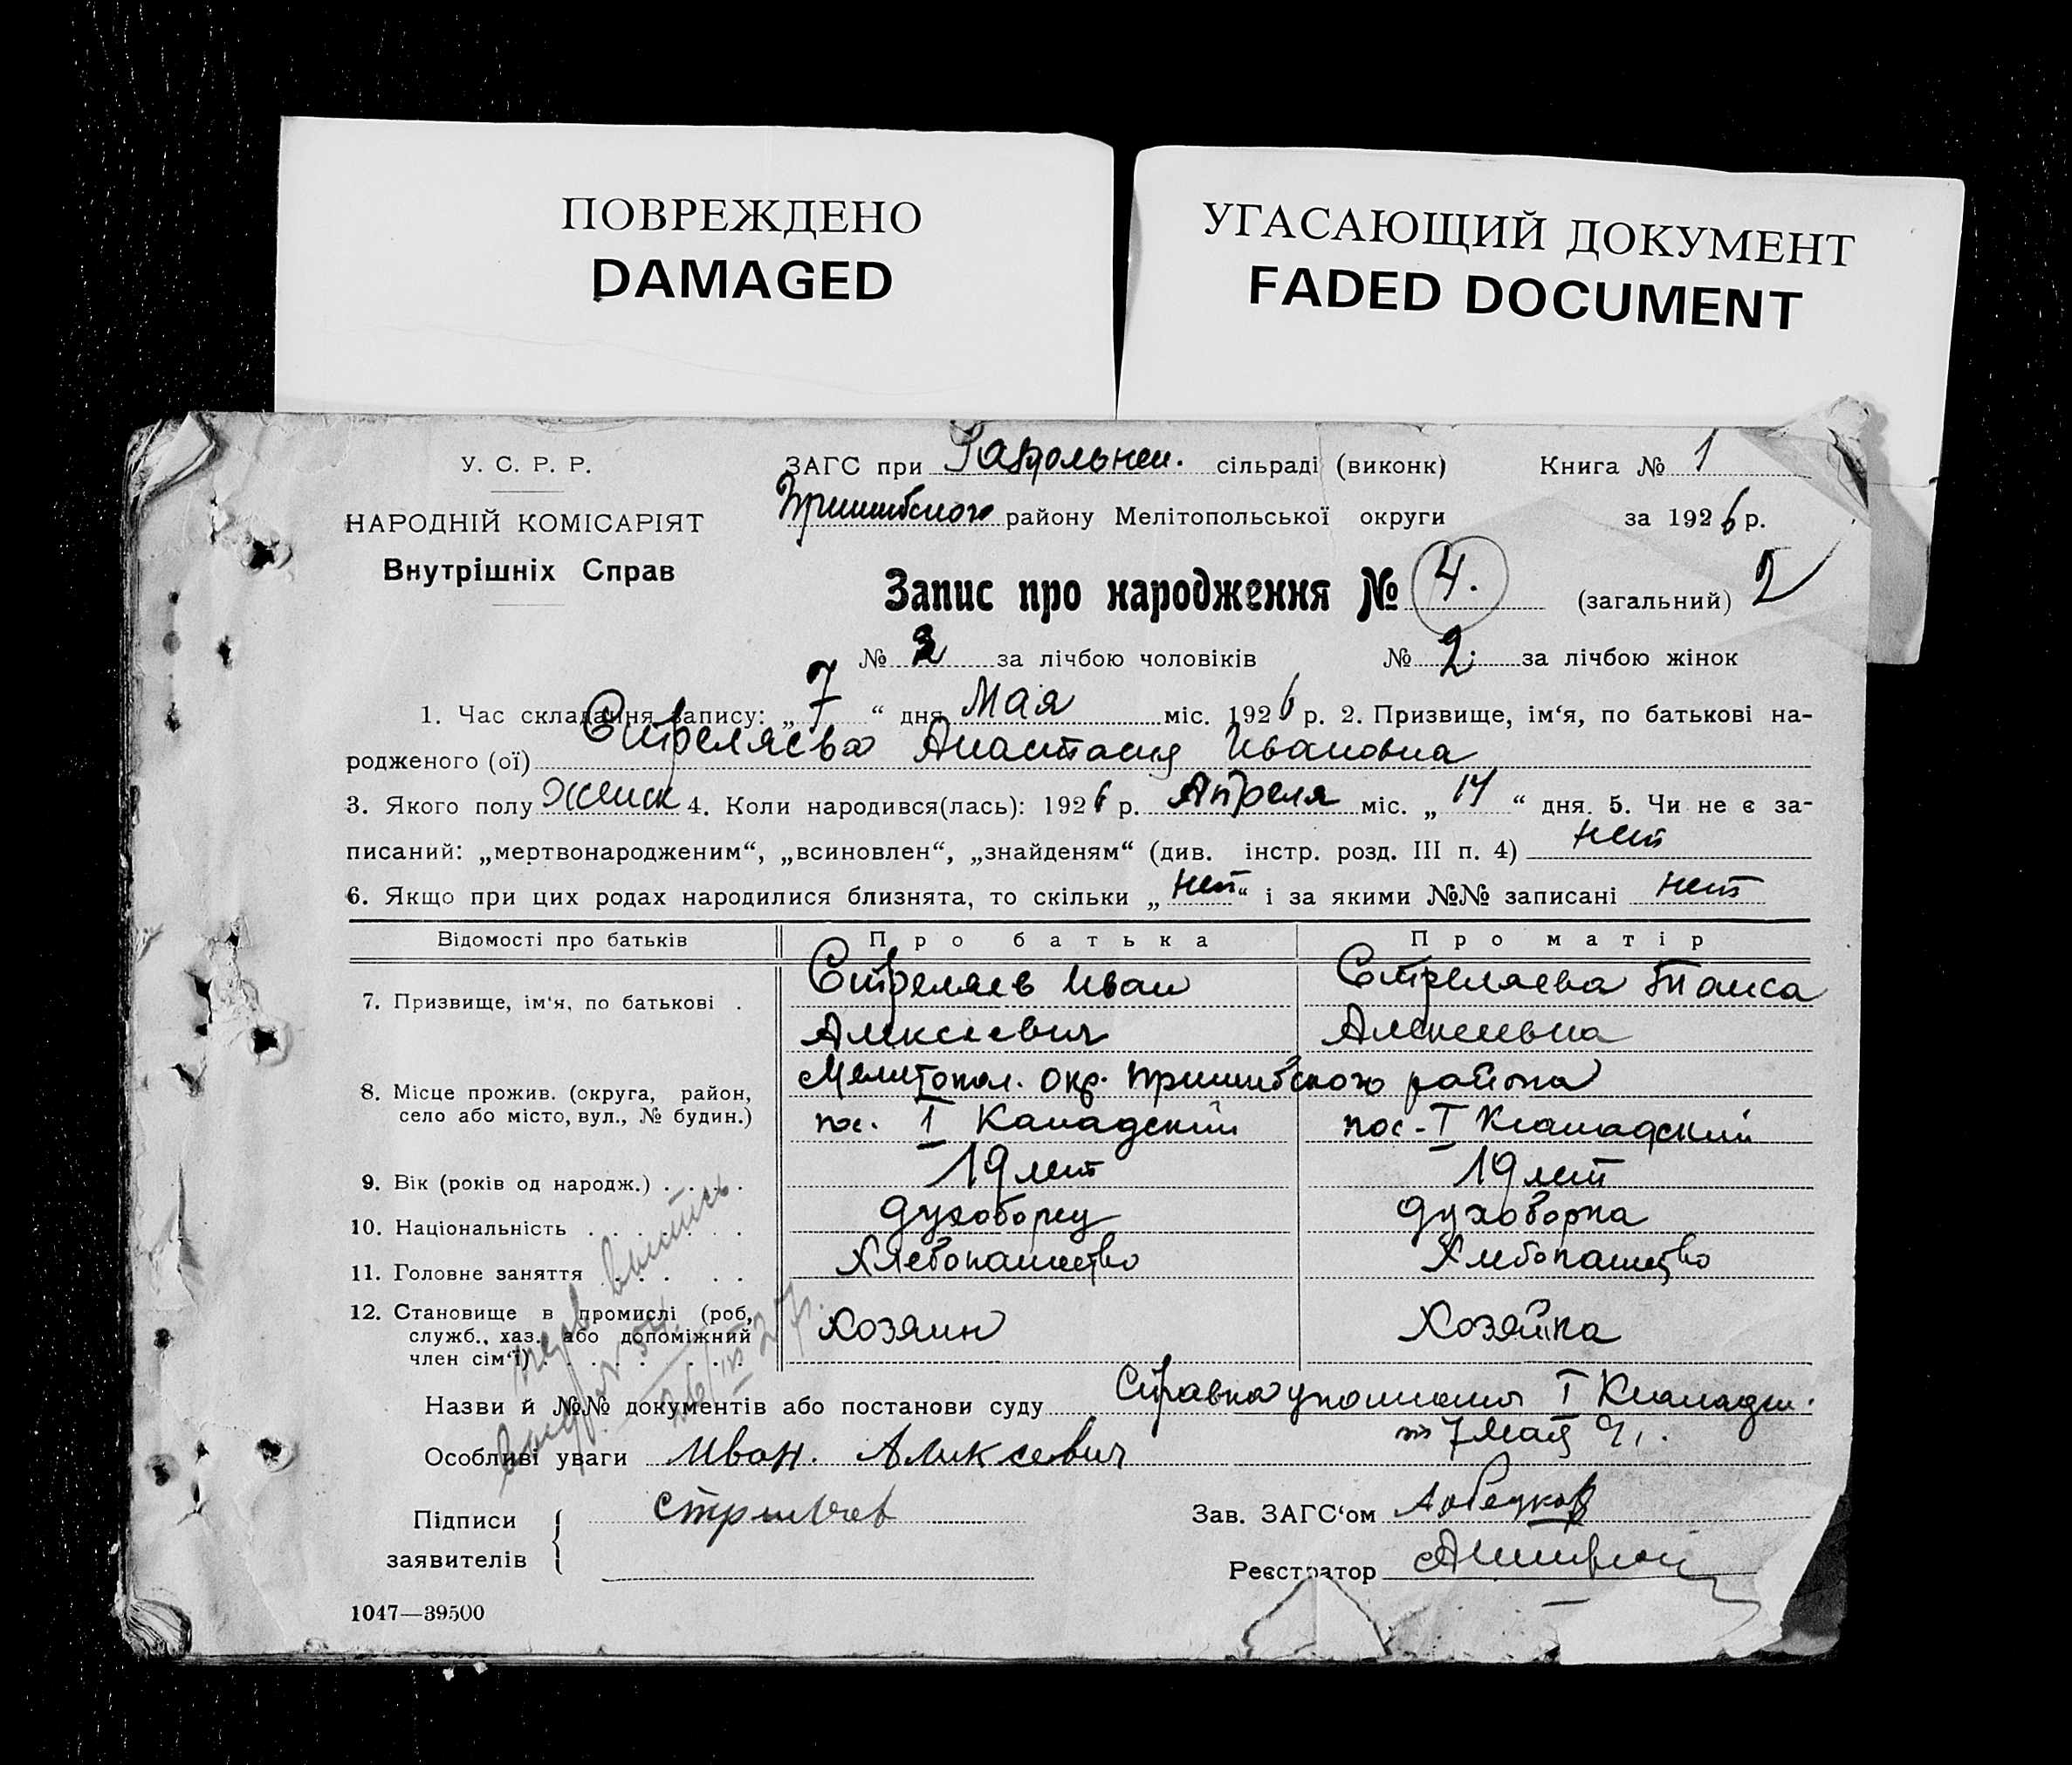 ПОВРЕЖДЕНО
DAMAGED
УГАСАЮЩИЙ ДОКУМЕНТ
FADED DOCUMENT
У. С. Р. Р.
НАРОДНІЙ КОМІСАРІЯТ
Внутрішніх Справ
ЗАГС при сільраді (виконк) Книга № 1
Пришибского району Мелітопольської округи за 1926 р.
Запис про народження № 4. (загальний) 2
№ за лічбою чоловіків № 2. за лічбою жінок
1. Час складання запису: „7“ дня Мая міс. 1926 р. 2. Призвище, ім'я, по батькові на-
родженого (ої) Стреляева Анастасия Ивановна
3. Якого полу Женск 4. Коли народився(лась): 1926 р. Апреля міс. „14“ дня. 5. Чи не є за-
писаний: „мертвонародженим“, „всиновлен“, „знайденям“ (див. інстр. розд. III п. 4) нет
6. Якщо при цих родах народилися близнята, то скільки „нет“ і за якими №№ записані нет
Відомості про батьків Про батька Про матір
7. Призвище, ім'я, по батькові . Стреляев Иван Стреляева Таиса
Алексеевич Алексеевна
8. Місце прожив. (округа, район, село або місто, вул., № будин.) Мелитопол. окр. Пришибского района
пос. I Канадский пос. I Канадский
9. Вік (років од народж.) . . . . . 19 лет 19 лет
10. Національність . . . . . . . духоборец духоборка
11. Головне заняття . . . . . . Хлебопашество Хлебопашество
12. Становище в промислі (роб, служб., хаз. або допоміжний член сім'ї) . . . . . . . . Хозяин Хозяйка
Назви й №№ документів або постанови суду Справка I Канадск.
7 Мая
Особливі уваги Иван. Алексевич
Підписи
заявителів
Зав. ЗАГС'ом
Реєстратор
1047—39500